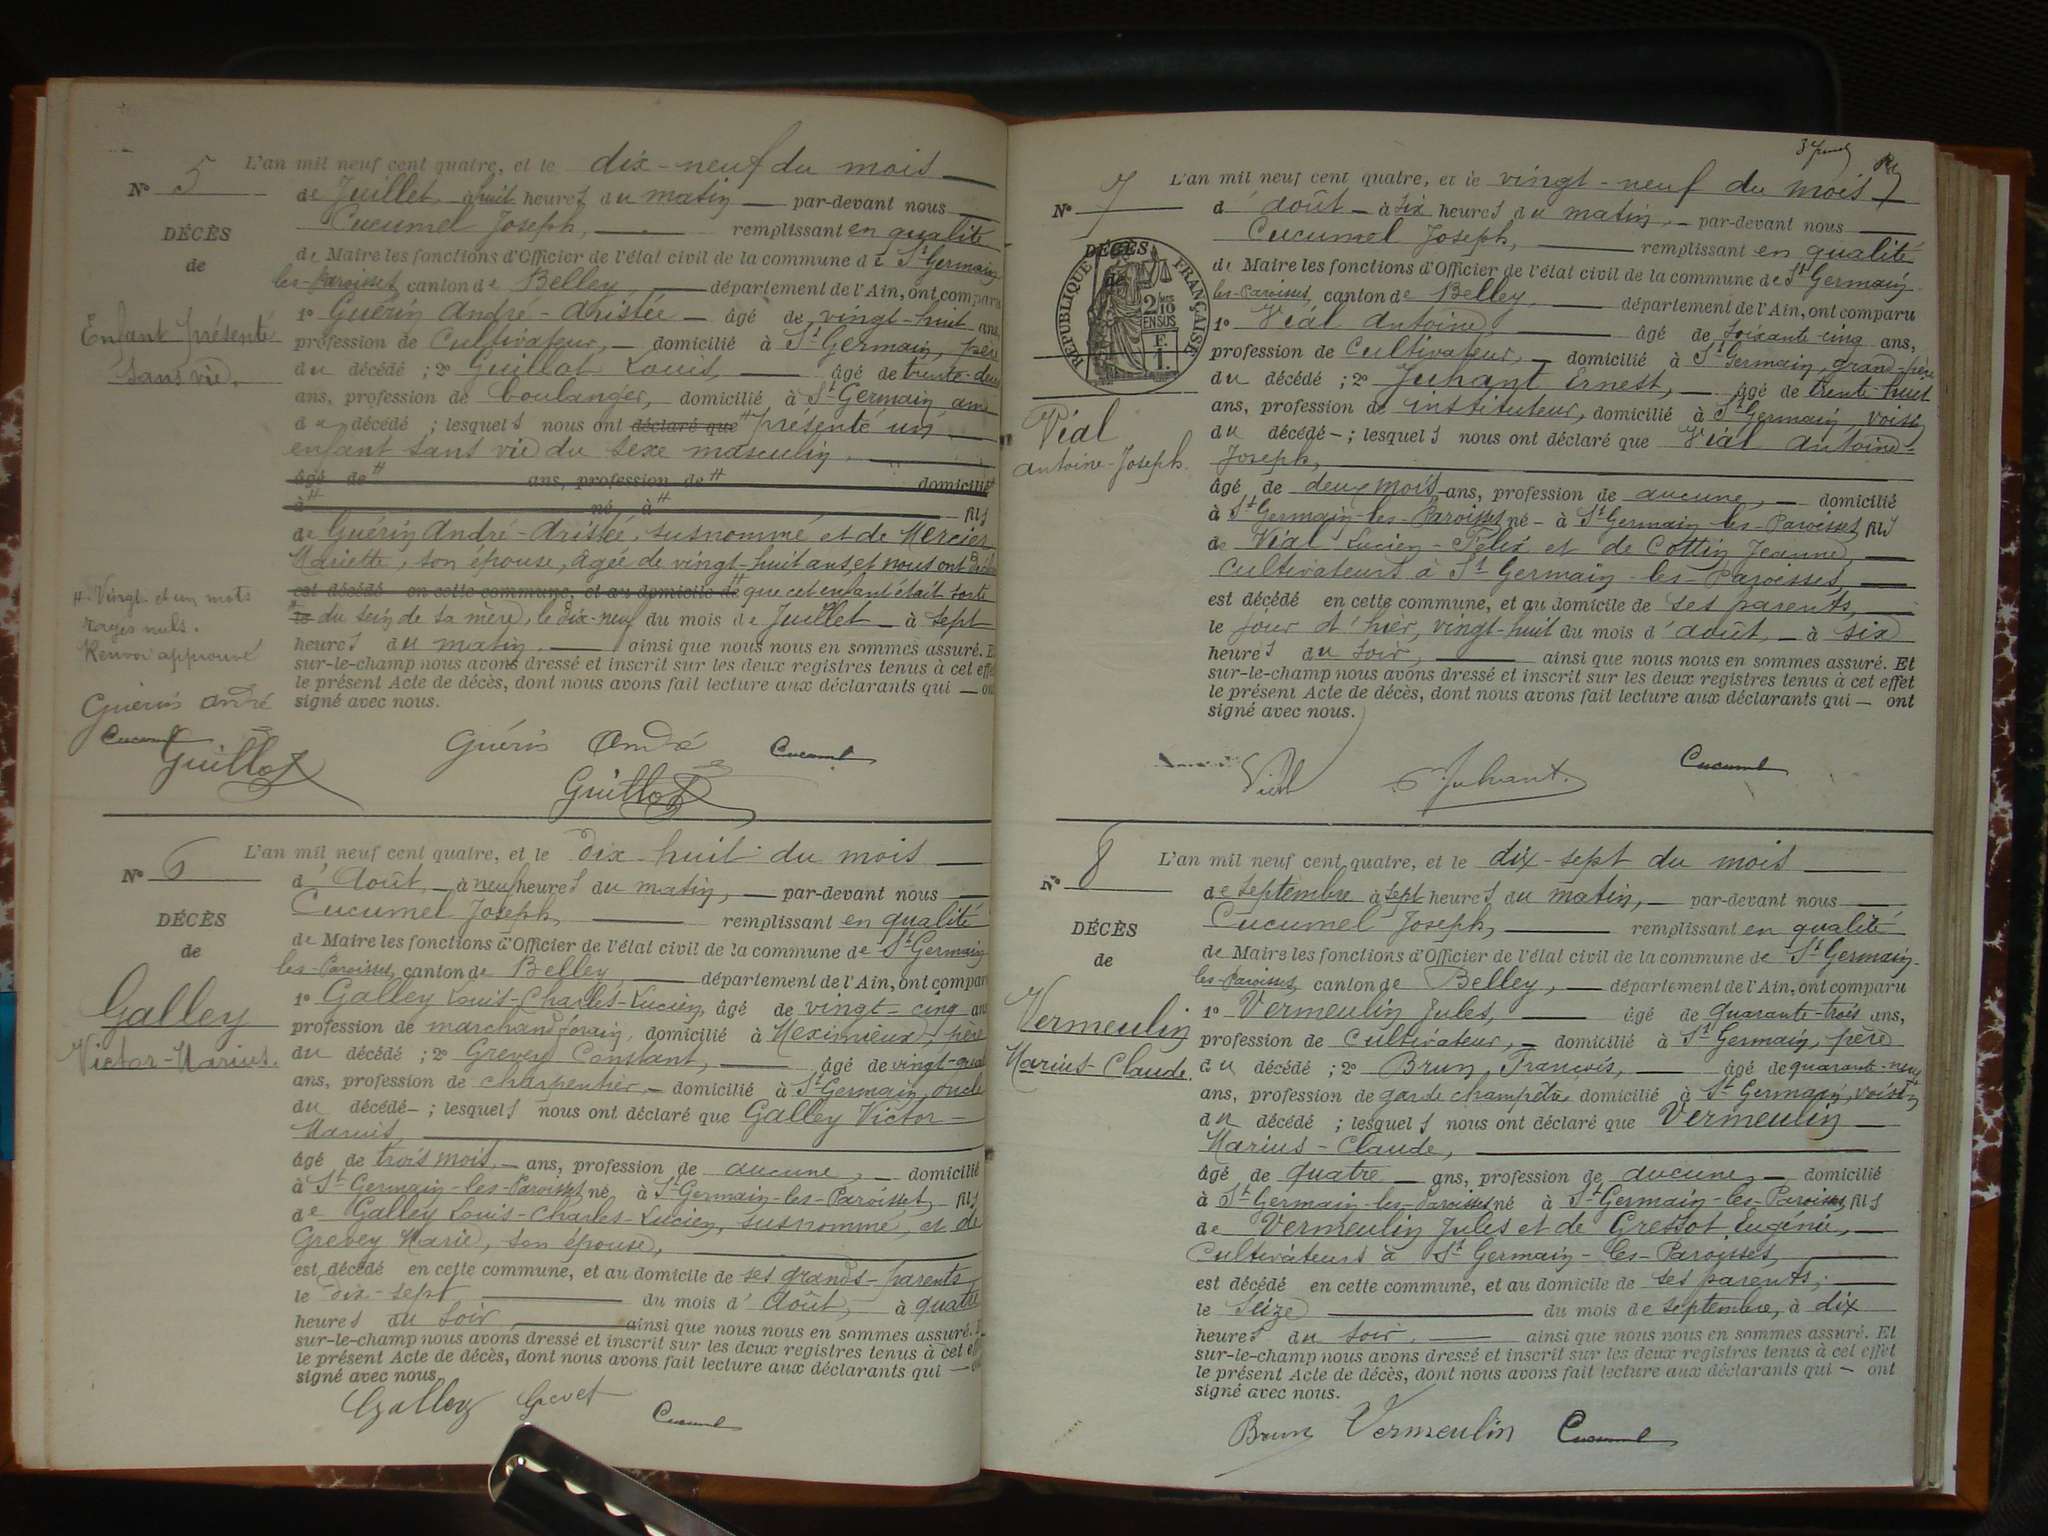 L'an mil neuf cent quatre, et le dix-neuf du mois
N° 5
de Juillet à huit heures du matin par-devant nous
Cucumel Joseph, remplissant en qualité
DÉCÈS
de Maire les fonctions d'Officier de l'état civil de la commune de St Germain
de
les-Paroisses, canton de Belley, département de l'Ain, ont comparu
1° Guérin André-Aristée âgé de vingt-huit ans
Enfant présenté
profession de Cultivateur, domicilié à St Germain, père
sans vie.
du décédé ; 2° Guillot Louis, âgé de trente-deux
ans, profession de boulanger, domicilié à St Germain, ami
du décédé ; lesquels nous ont déclaré que # présenté un
enfant sans vie du sexe masculin.
âgé de # ans, profession de # domicilié #
à # né, à # fils
de Guérin André-Aristée, susnommé et de Mercier
Mariette, son épouse, âgée de vingt-huit ans, et nous ont déclaré
est décédé en cette commune, et au domicile de # que cet enfant était sorti
# Vingt et un mots
le du sein de sa mère, le dix-neuf du mois de Juillet à sept
rayés nuls.
heures du matin. ainsi que nous nous en sommes assuré. E
Renvoi approuvé
sur-le-champ nous avons dressé et inscrit sur les deux registres tenus à cet effet
le présent Acte de décès, dont nous avons fait lecture aux déclarants qui ont
Guérin André
signé avec nous.
Cucumel
Guillot
Guérin André Cucumel
Guillot
L'an mil neuf cent quatre, et le dix-huit du mois
N° 6
d'Août à neuf heures du matin, par-devant nous
Cucumel Joseph, remplissant en qualité
DÉCÈS
de Maire les fonctions d'Officier de l'état civil de la commune de St Germain
de
les-Paroisses, canton de Belley, département de l'Ain, ont comparu
1° Galley Louis-Charles-Lucien, âgé de vingt-cinq ans
Galley
profession de marchand forain, domicilié à Meximieux, père
Victor-Marius.
du décédé ; 2° Grevey Constant, âgé de vingt-quat
ans, profession de charpentier, domicilié à St Germain, oncle
du décédé ; lesquels nous ont déclaré que Galley Victor-
Marius,
âgé de trois mois ans, profession de aucune, domicilié
à St Germain-les-Paroisses né à St Germain-les-Paroisses, fils
de Galley Louis-Charles-Lucien, susnommé, et de
Grevey Marie, son épouse,
est décédé en cette commune, et au domicile de ses grands-parents
le dix-sept du mois d'Août, à quatre
heures du soir, ainsi que nous nous en sommes assuré. E
sur-le-champ nous avons dressé et inscrit sur les deux registres tenus à cet eff
le présent Acte de décès, dont nous avons fait lecture aux déclarants qui on
signé avec nous.
Galley Grevet Cucumel
L'an mil neuf cent quatre, et le vingt-neuf du mois
N° 7
d'août à six heures du matin, par-devant nous
Cucumel Joseph, remplissant en qualité
DÉCÈS
de
RÉPUBLIQUE FRANÇAISE
2/10 EN SUS
1 F.
de Maire les fonctions d'Officier de l'état civil de la commune de St Germain
les-Paroisses, canton de Belley département de l'Ain, ont comparu
1° Vial Antoine, âgé de soixante-cinq ans,
profession de Cultivateur, domicilié à St Germain, grand-père
du décédé ; 2° Juhant Ernest, âgé de trente-huit
ans, profession de instituteur, domicilié à St Germain, voisin
Vial
du décédé ; lesquels nous ont déclaré que Vial Antoine-
Antoine-Joseph.
Joseph,
âgé de deux mois ans, profession de aucune, domicilié
à St Germain-les-Paroisses né à St Germain-les-Paroisses, fils
de Vial Lucien-Félix et de Cottin Jeanne,
Cultivateurs à St Germain-les-Paroisses,
est décédé en cette commune, et au domicile de ses parents,
le jour d'hier, vingt-huit du mois d'août, à six
heures du soir, ainsi que nous nous en sommes assuré. Et
sur-le-champ nous avons dressé et inscrit sur les deux registres tenus à cet effet
le présent Acte de décès, dont nous avons fait lecture aux déclarants qui ont
signé avec nous.
Vial Juhant. Cucumel
L'an mil neuf cent quatre, et le dix-sept du mois
N° 8
de septembre à sept heures du matin, par-devant nous
Cucumel Joseph, remplissant en qualité
DÉCÈS
de Maire les fonctions d'Officier de l'état civil de la commune de St Germain-
de
les-Paroisses, canton de Belley, département de l'Ain, ont comparu
1° Vermeulin Jules, âgé de quarante-trois ans,
Vermeulin
profession de Cultivateur, domicilié à St Germain, père
Marius-Claude.
du décédé ; 2° Brun François, âgé de quarante-neuf
ans, profession de garde champêtre domicilié à St Germain, voisin
du décédé ; lesquels nous ont déclaré que Vermeulin
Marius-Claude,
âgé de quatre ans, profession de aucune domicilié
à St Germain-les-Paroisses né à St Germain-les-Paroisses, fils
de Vermeulin Jules et de Gressot Eugénie,
Cultivateurs à St Germain-les-Paroisses,
est décédé en cette commune, et au domicile de ses parents,
le seize du mois de septembre, à dix
heures du soir. ainsi que nous nous en sommes assuré. Et
sur-le-champ nous avons dressé et inscrit sur les deux registres tenus à cet effet
le présent Acte de décès, dont nous avons fait lecture aux déclarants qui ont
signé avec nous.
Brun Vermeulin Cucumel